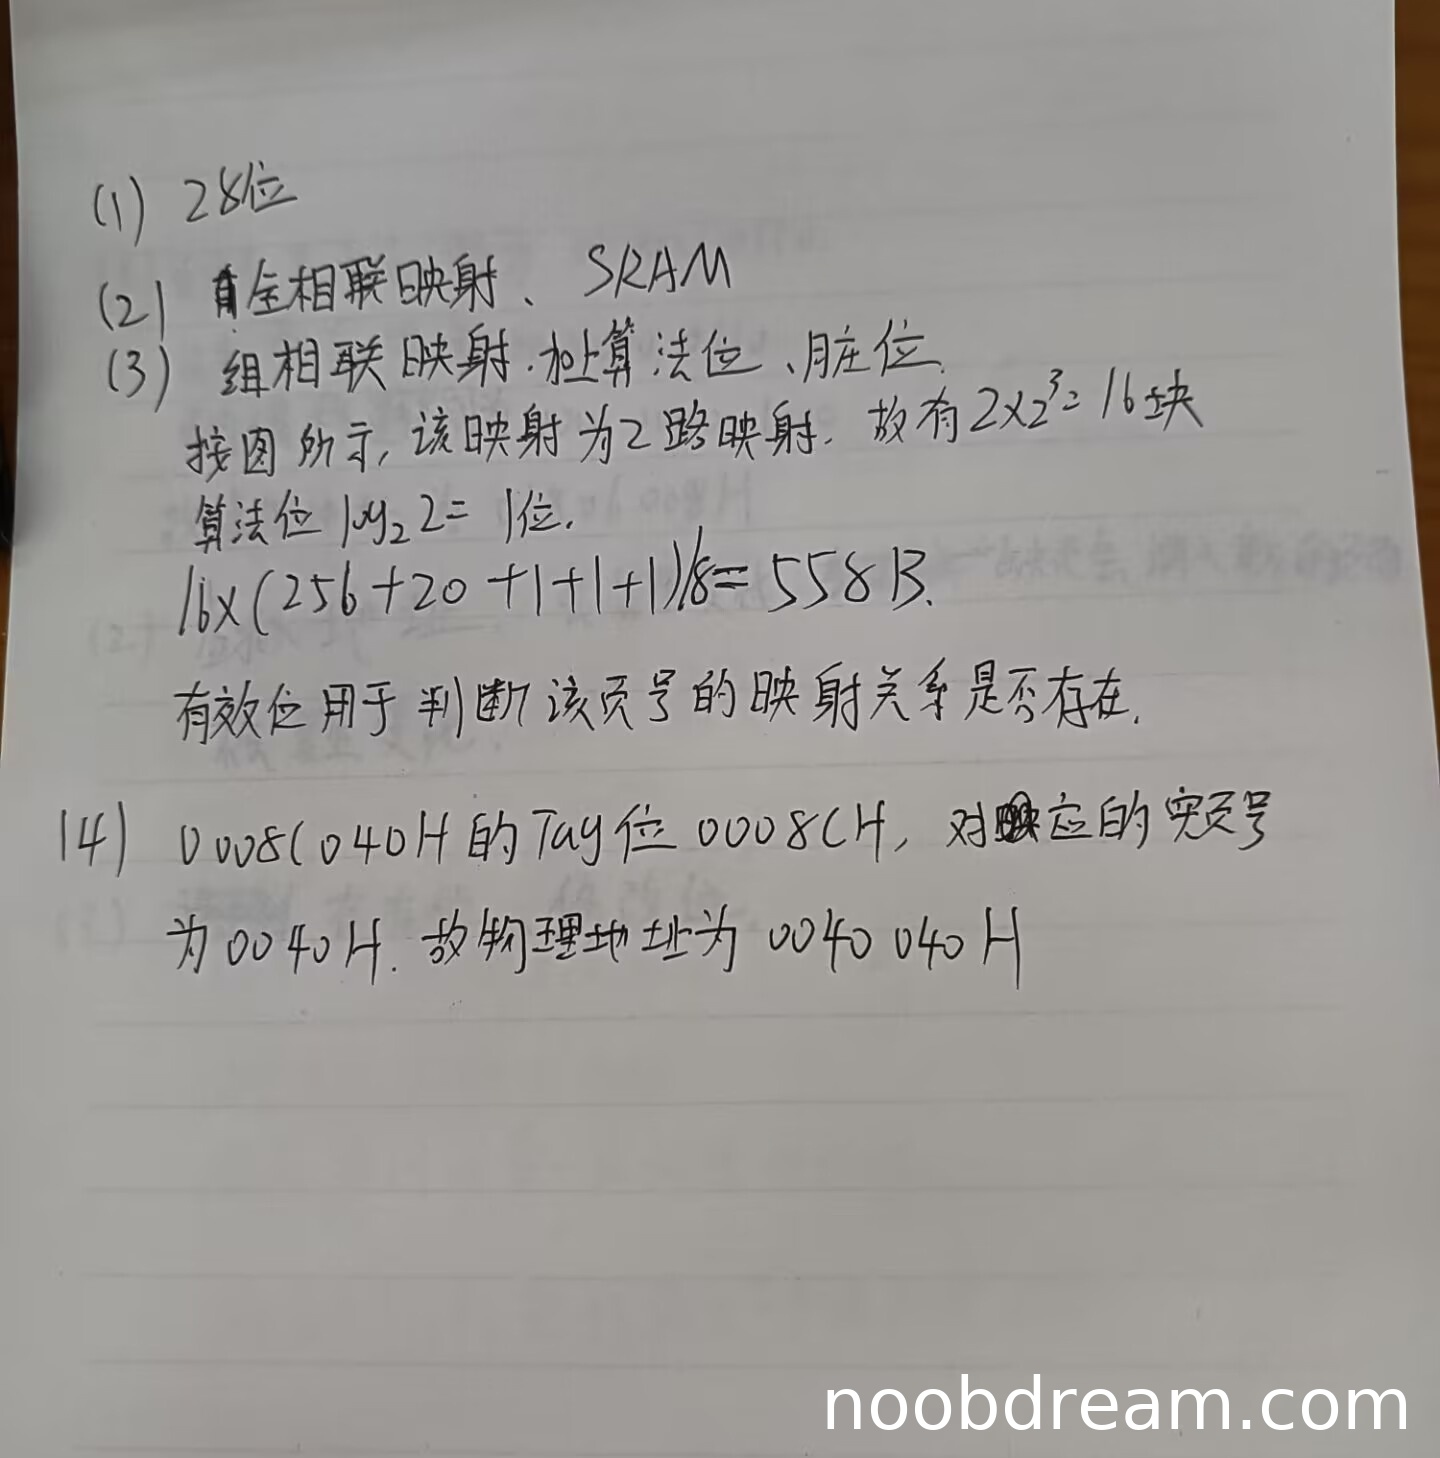 (1) 28位
(2) 全相联映射、 SRAM
(3) 组相联映射.加上算法位、脏位.
按图所示,该映射为2路映射.故有2×2³=16块
算法位log₂2=1位.
16×(256+20+1+1+1)/8=558B.
有效位用于判断该页号的映射关系是否存在.
(4) 0008C040H的Tag位0008CH,对应的实页号
为0040H.故物理地址为0040040H
noobdream.com